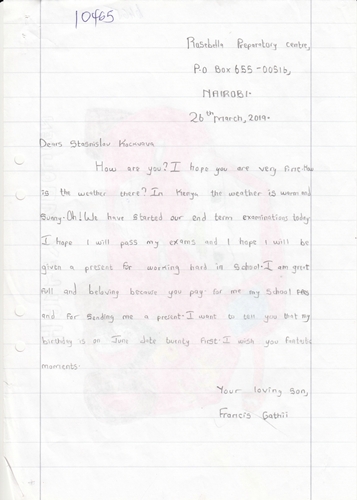 10465
Rosebella Preparatory centre,
P.O Box 655 -00516,
NAIROBI.
26th March, 2019.
Dears Stanislav
How are you? I hope you are very fine. How
is the weather there? In Kenya the weather is warm and
Sunny. Oh! We have started our end term examinations today
I hope I will pass my exams and I hope I will be
given a present for working hard in School. I am great
full and beleving because you pay for me my School fees
and for sending me a present. I want to tell you that my
birthday is on June date twenty first. I wish you fantastic
moments.
Your loving son,
Francis Gathii